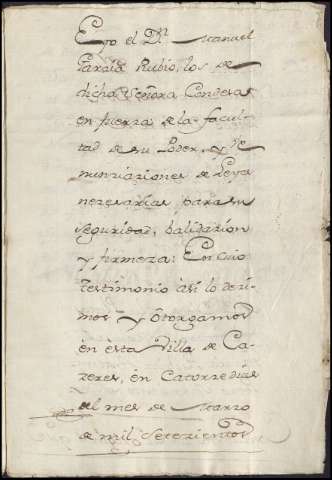 Eyo el Dr. Manuel
Garcia Rubio, los de
dicha Señora Condesa
en fuerza de la facul-
tad de su Poder, y re-
nunciaciones de Leyes
necesarias, para su
seguridad, balidacion
y firmeza: En cuio
testimonio asi lo deci-
mos y Otorgamos
en esta Villa de Ca-
zeres, en Catorce dias
del mes de Marzo
de mil Setecientos